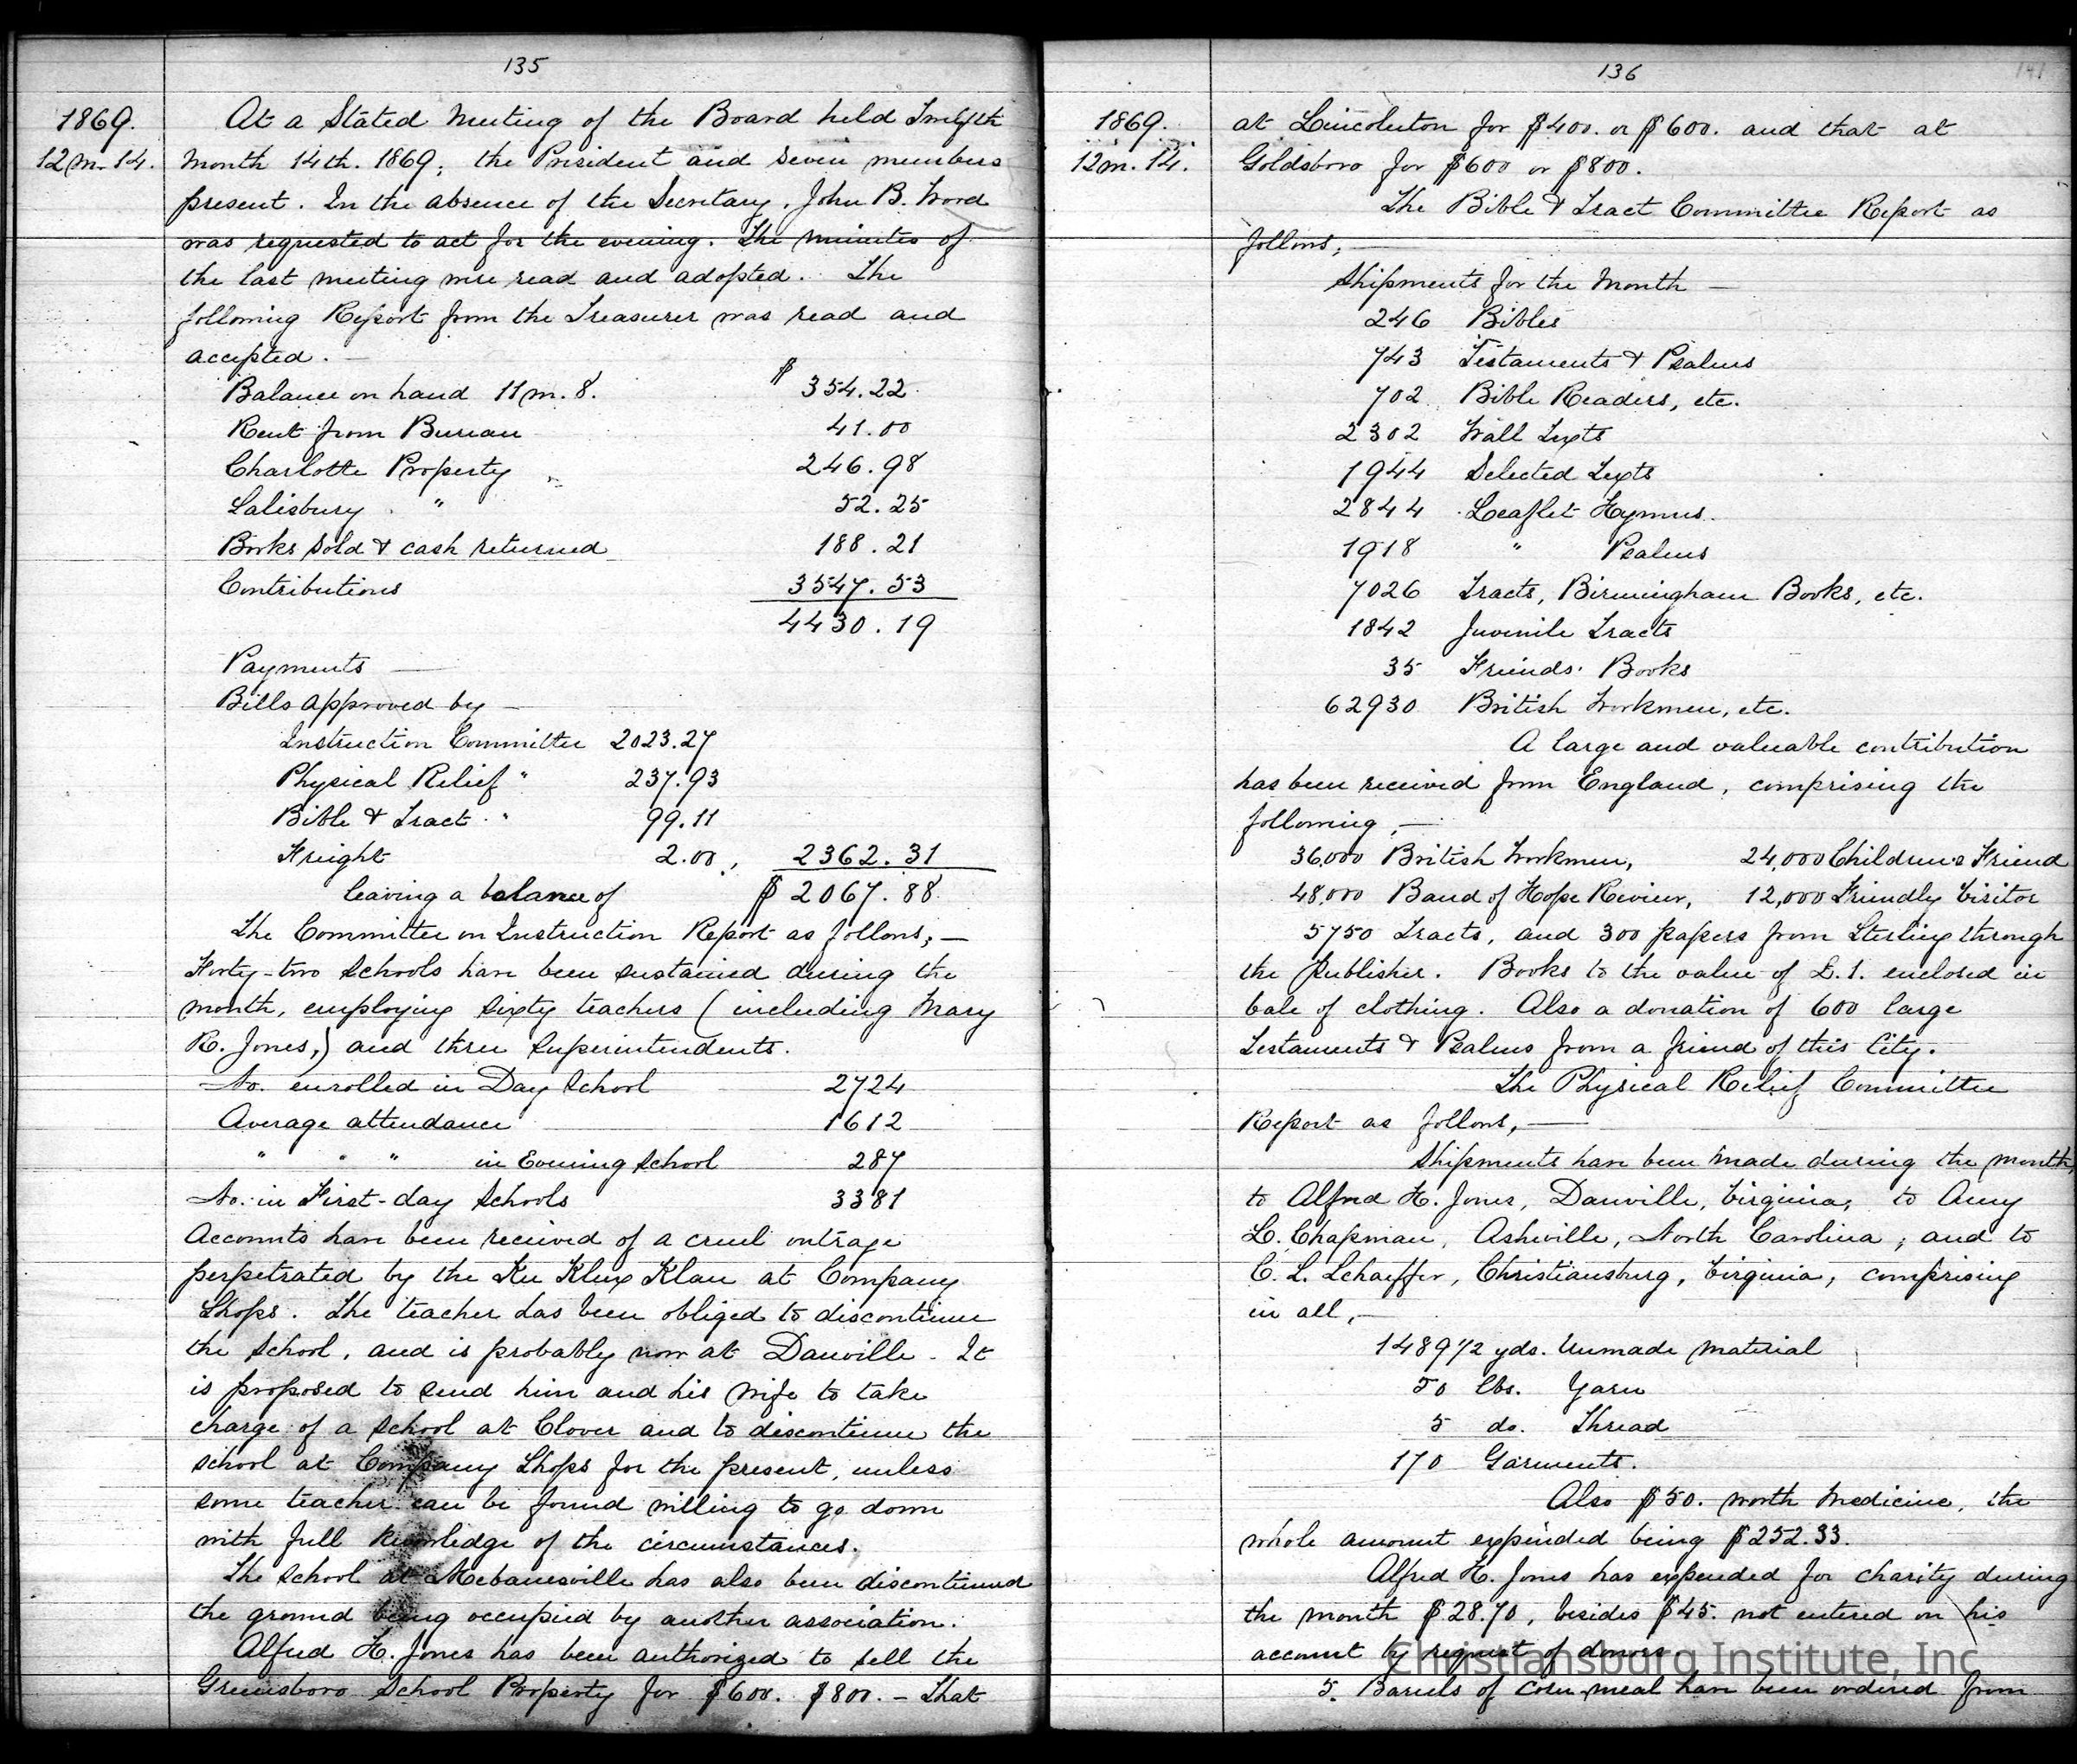 135
1869.
12 m. 14.
At a Stated Meeting of the Board held Twelfth
Month 14th. 1869; the President and seven members
present. In the absence of the Secretary, John B. Wood
was requested to act for the evening. The minutes of
the last meeting were read and adopted. The
following Report from the Treasurer was read and
accepted. —
Balance on hand 11 m. 8. $ 354.22
Rent from Bureau 41.00
Charlotte Property 246.98
Salisbury " 52.25
Books sold & cash returned 188.21
Contributions 3547.53
4430.19
Payments —
Bills approved by —
Instruction Committee 2023.27
Physical Relief " 237.93
Bible & Tract " 99.11
Freight 2.00, 2362.31
leaving a balance of $ 2067.88
The Committee on Instruction Report as follows; —
Forty-two schools have been sustained during the
month, employing sixty teachers (including Mary
R. Jones,) and three superintendents.
No. enrolled in Day School 2724
Average attendance 1612
" " " in Evening School 287
No. in First-day Schools 3381
Accounts have been received of a cruel outrage
perpetrated by the Ku Klux Klan at Company
Shops. The teacher has been obliged to discontinue
the school, and is probably now at Danville. It
is proposed to send him and his wife to take
charge of a school at Clover and to discontinue the
school at Company Shops for the present, unless
some teacher can be found willing to go down
with full knowledge of the circumstances.
The School at Mebanesville has also been discontinued
the ground being occupied by another association.
Alfred H. Jones has been authorized to sell the
Greensboro School Property for $600. $800. — That
136
141
1869.
12 m. 14.
at Lincolnton for $400. or $600. and that at
Goldsboro for $600 or $800.
The Bible & Tract Committee Report as
follows; —
Shipments for the Month —
246 Bibles
743 Testaments & Psalms
702 Bible Readers, etc.
2302 Wall Texts
1944 Selected Texts
2844 Leaflet Hymns.
1918 " Psalms
7026 Tracts, Birmingham Books, etc.
1842 Juvenile Tracts
35 Friends' Books
62930 British Workmen, etc.
A large and valuable contribution
has been received from England, comprising the
following, —
36,000 British Workmen, 24,000 Children's Friend
48,000 Band of Hope Review, 12,000 Friendly Visitor
5750 Tracts, and 300 papers from Sterling through
the publisher. Books to the value of £.1. enclosed in
bale of clothing. Also a donation of 600 large
Testaments & Psalms from a friend of this City.
The Physical Relief Committee
Report as follows, —
Shipments have been made during the month,
to Alfred H. Jones, Danville, Virginia; to Amy
L. Chapman, Asheville, North Carolina; and to
C. L. Schaeffer, Christiansburg, Virginia; comprising
in all, —
1489 1/2 yds. Unmade material
50 lbs. Yarn
5 do. Thread
170 Garments.
Also $50. worth Medicine, the
whole amount expended being $252.33.
Alfred H. Jones has expended for charity during
the month $28.70, besides $45. not entered on his
account by request of donors.
5. Barrels of corn meal have been ordered from
Christiansburg Institute, Inc